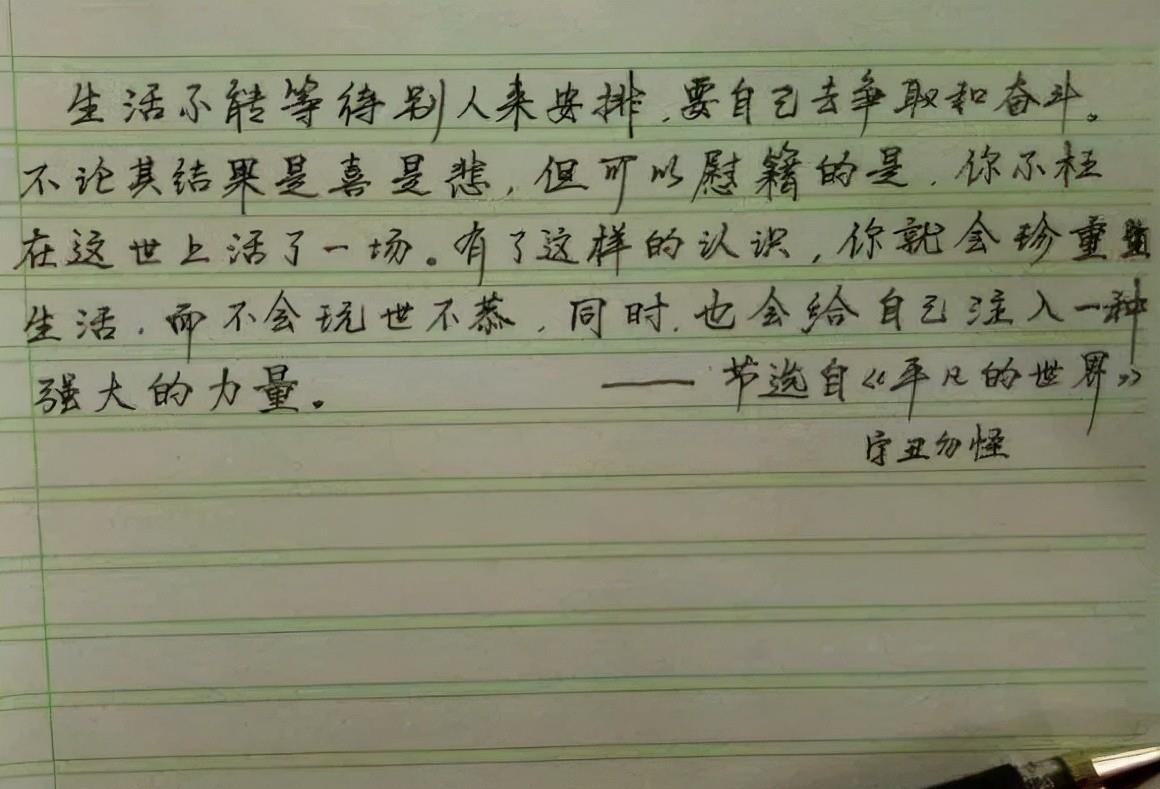 生活不能等待别人来安排,要自己去争取和奋斗。
不论其结果是喜是悲,但可以慰籍的是,你不枉
在这世上活了一场。有了这样的认识,你就会珍重
生活,而不会玩世不恭,同时,也会给自己注入一种
强大的力量。 —— 节选自《平凡的世界》
字丑勿怪